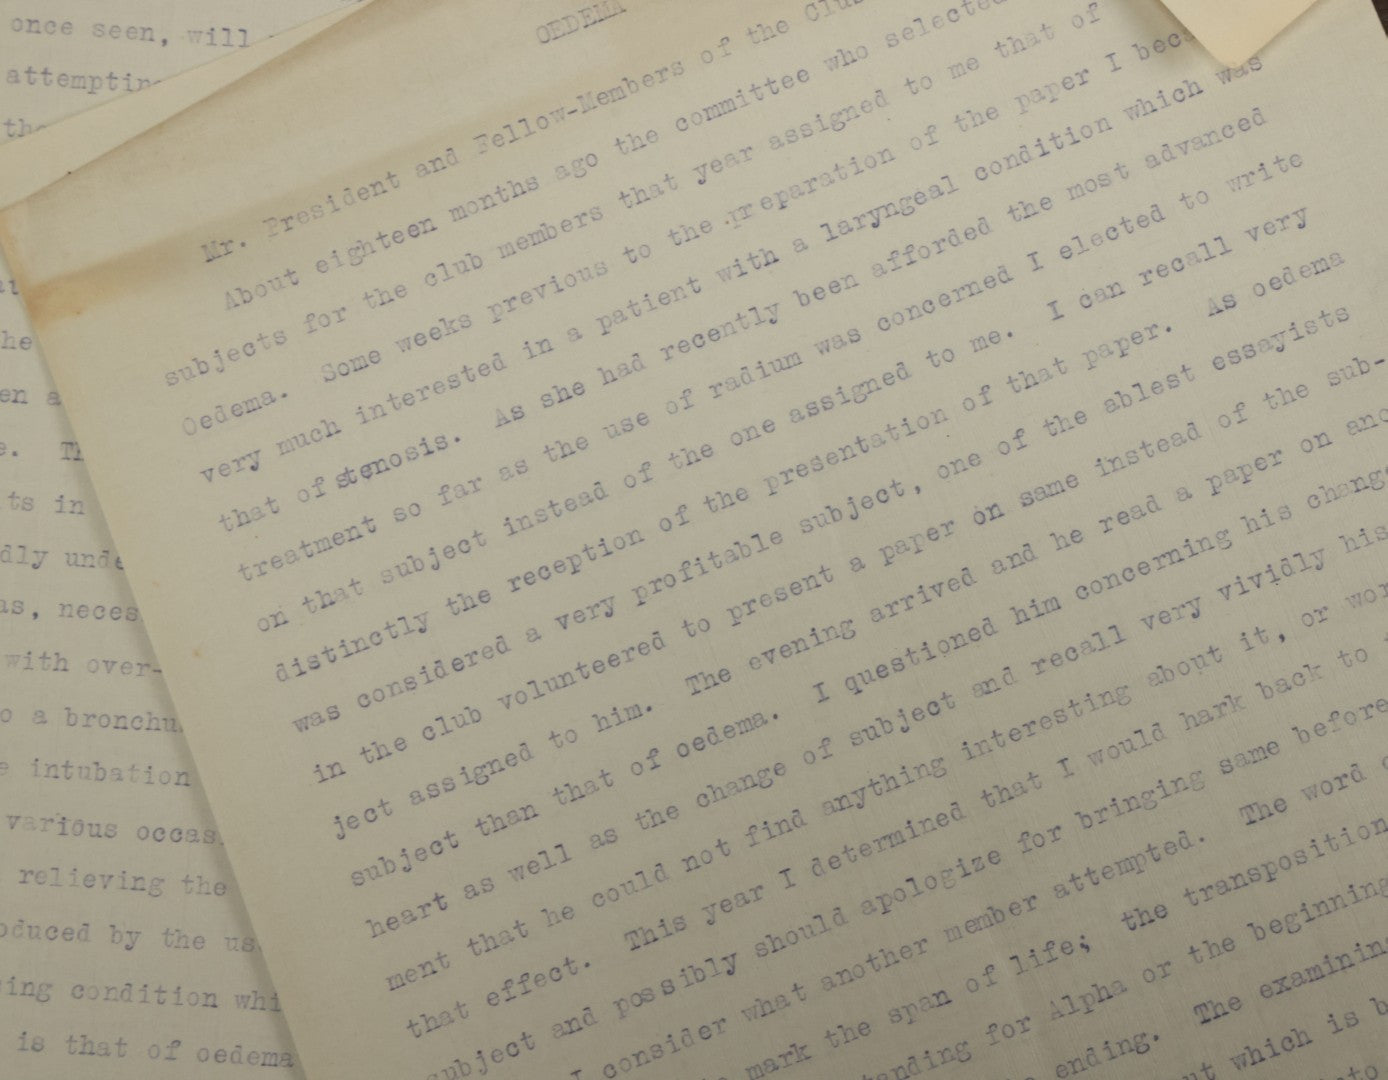 once seen, will
attempting
the
he
en a
e. Th
ts in
dly unde
as, neces
with over-
o a bronchu
e intubation
various occas
relieving the
oduced by the us
ing condition whi
is that of oedema
OEDEMA
Mr. President and Fellow-Members of the Club
About eighteen months ago the committee who selected
subjects for the club members that year assigned to me that of
Oedema. Some weeks previous to the preparation of the paper I beca
very much interested in a patient with a laryngeal condition which was
that of stenosis. As she had recently been afforded the most advanced
treatment so far as the use of radium was concerned I elected to write
on that subject instead of the one assigned to me. I can recall very
distinctly the reception of the presentation of that paper. As oedema
was considered a very profitable subject, one of the ablest essayists
in the club volunteered to present a paper on same instead of the sub-
ject assigned to him. The evening arrived and he read a paper on ano
subject than that of oedema. I questioned him concerning his change
heart as well as the change of subject and recall very vividly his
ment that he could not find anything interesting about it, or wor
that effect. This year I determined that I would hark back to
subject and possibly should apologize for bringing same before
I consider what another member attempted. The word
mark the span of life; the transposition
anding for Alpha or the beginning
ending. The examining
ut which is b